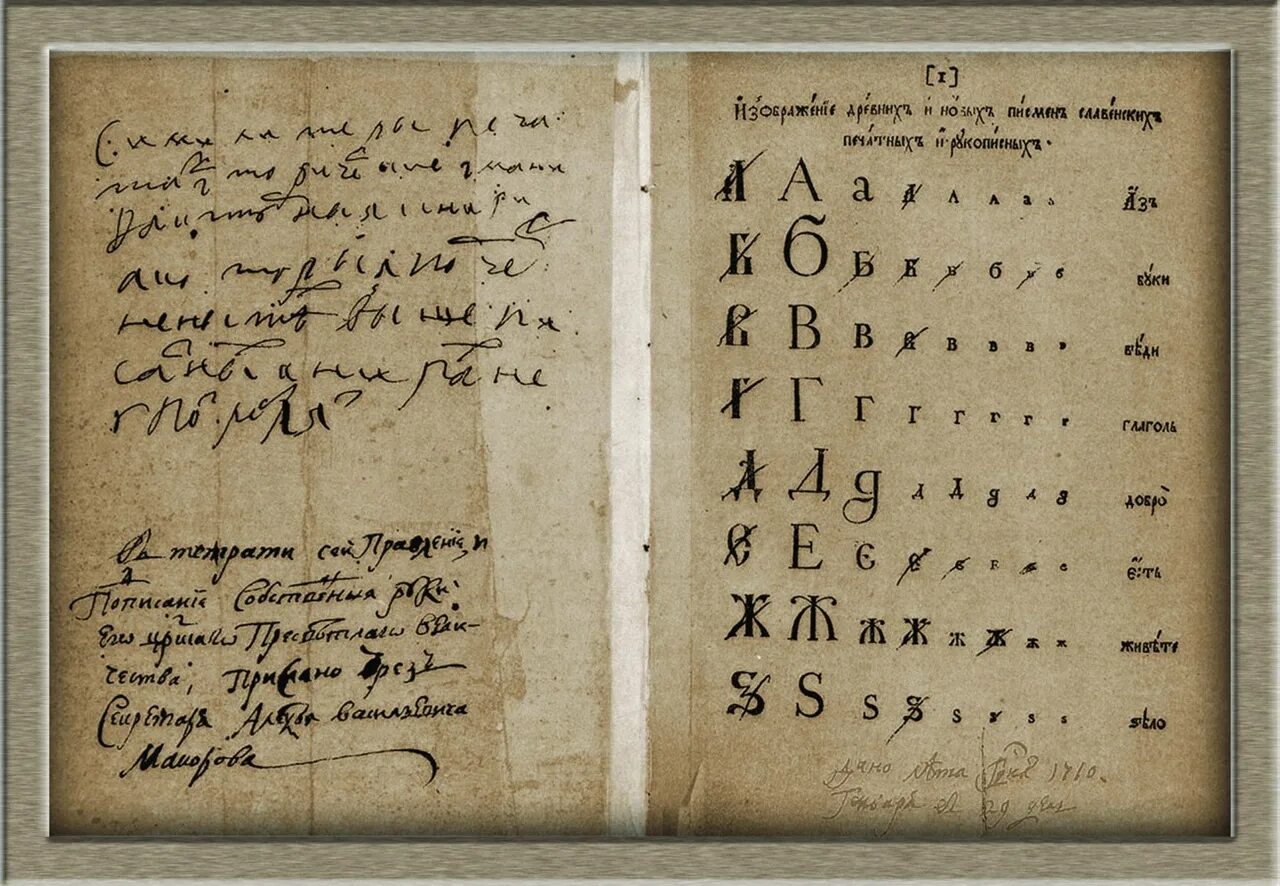 Сими литеры печа
тать исторические и мани
фатурныя книги
а которыя почер
ненны тѣ выше пи
саных книгах не
употреблять
В тетрати сей Правленїе, и
Потписанїе Собственныя руки
Его црскаго Пресвѣтлаго Вели-
чества, Прислано чрезъ
Секретаря Алеѯѣя василѣевича
Макарова
[1]
И҆зѡбраже́нїе дре́внихъ и҆ но́выхъ пи́сменъ славе́нскихъ
печа́тныхъ и҆ рꙋкопи́сныхъ.
А А а а а а а а а҆́зъ
Б Б Б Б Б б б б бꙋ́ки
В В В В В В В В вѣ́ди
Г Г Г Г Г Г Г Г глаго́ль
Д Д д Д Д д д д добро̀
Є Е Є Є є Е є є є҆́сть
Ж Ж Ж Ж Ж Ж Ж Ж живѣ́те
Ѕ Ѕ Ѕ Ѕ Ѕ Ѕ Ѕ Ѕ ѕѣло̀
дано лѣта Гдня 1710.
Генваря въ 29 день